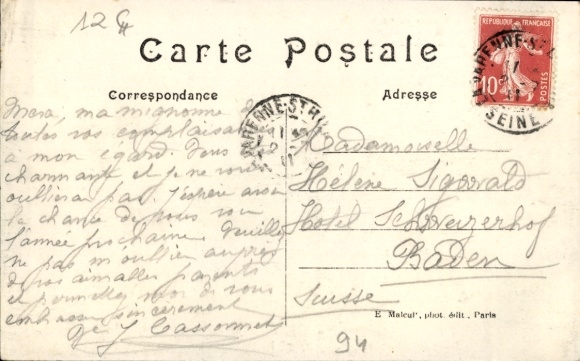 12
Carte Postale
Correspondance
Adresse
RÉPUBLIQUE FRANÇAISE
10
POSTES
LA VARENNE-ST
SEINE
VARENNE-ST
ma mignonne
toutes vos complaisances
à mon égard. Vous
charmante et je ne vous
oublierai pas. J'espère avoir
la chance de vous voir
l'année prochaine. Veuillez
ne pas m'oublier auprès
de vos aimables parents
et moi de vous
embrasser sincèrement
J Cassonnet
Mademoiselle
Hélène Sigswald
Hôtel Schweizerhof
Baden
Suisse
E Malcuit, phot. édit., Paris
94